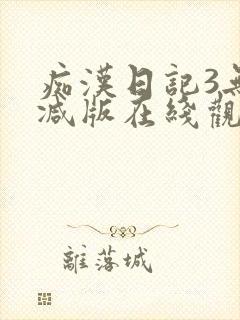 痴漢日記3無
減版在綫觀
離落城